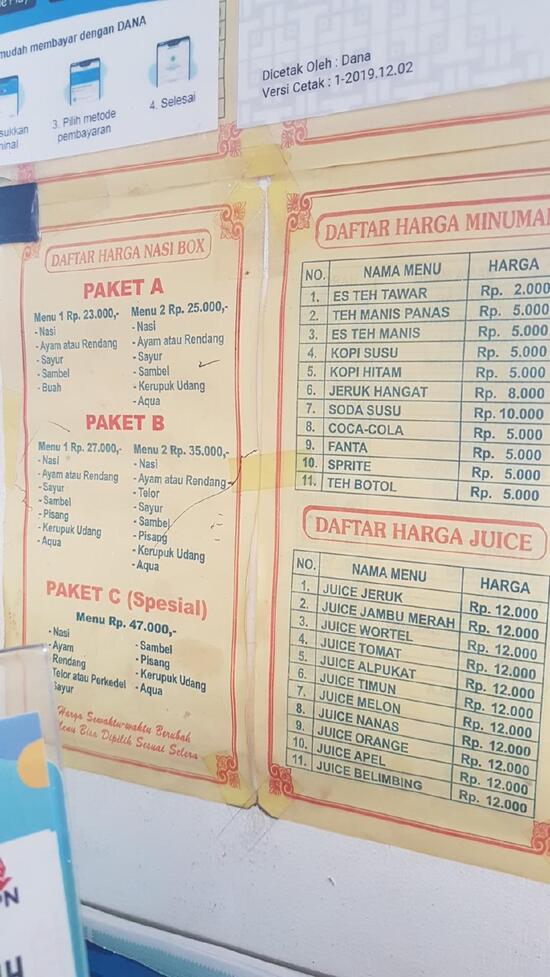 mudah membayar dengan DANA
3. Pilih metode
pembayaran
4. Selesai
Dicetak Oleh : Dana
Versi Cetak : 1-2019.12.02
DAFTAR HARGA NASI BOX
PAKET A
Menu 1 Rp. 23.000,-
- Nasi
- Ayam atau Rendang
- Sayur
- Sambel
- Buah
Menu 2 Rp. 25.000,-
- Nasi
- Ayam atau Rendang
- Sayur
- Sambel
- Kerupuk Udang
- Aqua
PAKET B
Menu 1 Rp. 27.000,-
- Nasi
- Ayam atau Rendang
- Sayur
- Sambel
- Pisang
- Kerupuk Udang
- Aqua
Menu 2 Rp. 35.000,-
- Nasi
- Ayam atau Rendang
- Telor
- Sayur
- Sambel
- Pisang
- Kerupuk Udang
- Aqua
PAKET C (Spesial)
Menu Rp. 47.000,-
- Nasi
- Ayam
Rendang
Telor atau Perkedel
Sayur
- Sambel
- Pisang
- Kerupuk Udang
- Aqua
Harga Sewaktu-waktu Berubah
Bisa Dipilih Sesuai Selera
DAFTAR HARGA MINUMAN
NO. NAMA MENU HARGA
1. ES TEH TAWAR Rp. 2.000
2. TEH MANIS PANAS Rp. 5.000
3. ES TEH MANIS Rp. 5.000
4. KOPI SUSU Rp. 5.000
5. KOPI HITAM Rp. 5.000
6. JERUK HANGAT Rp. 8.000
7. SODA SUSU Rp. 10.000
8. COCA-COLA Rp. 5.000
9. FANTA Rp. 5.000
10. SPRITE Rp. 5.000
11. TEH BOTOL Rp. 5.000
DAFTAR HARGA JUICE
NO. NAMA MENU HARGA
1. JUICE JERUK Rp. 12.000
2. JUICE JAMBU MERAH Rp. 12.000
3. JUICE WORTEL Rp. 12.000
4. JUICE TOMAT Rp. 12.000
5. JUICE ALPUKAT Rp. 12.000
6. JUICE TIMUN Rp. 12.000
7. JUICE MELON Rp. 12.000
8. JUICE NANAS Rp. 12.000
9. JUICE ORANGE Rp. 12.000
10. JUICE APEL Rp. 12.000
11. JUICE BELIMBING Rp. 12.000